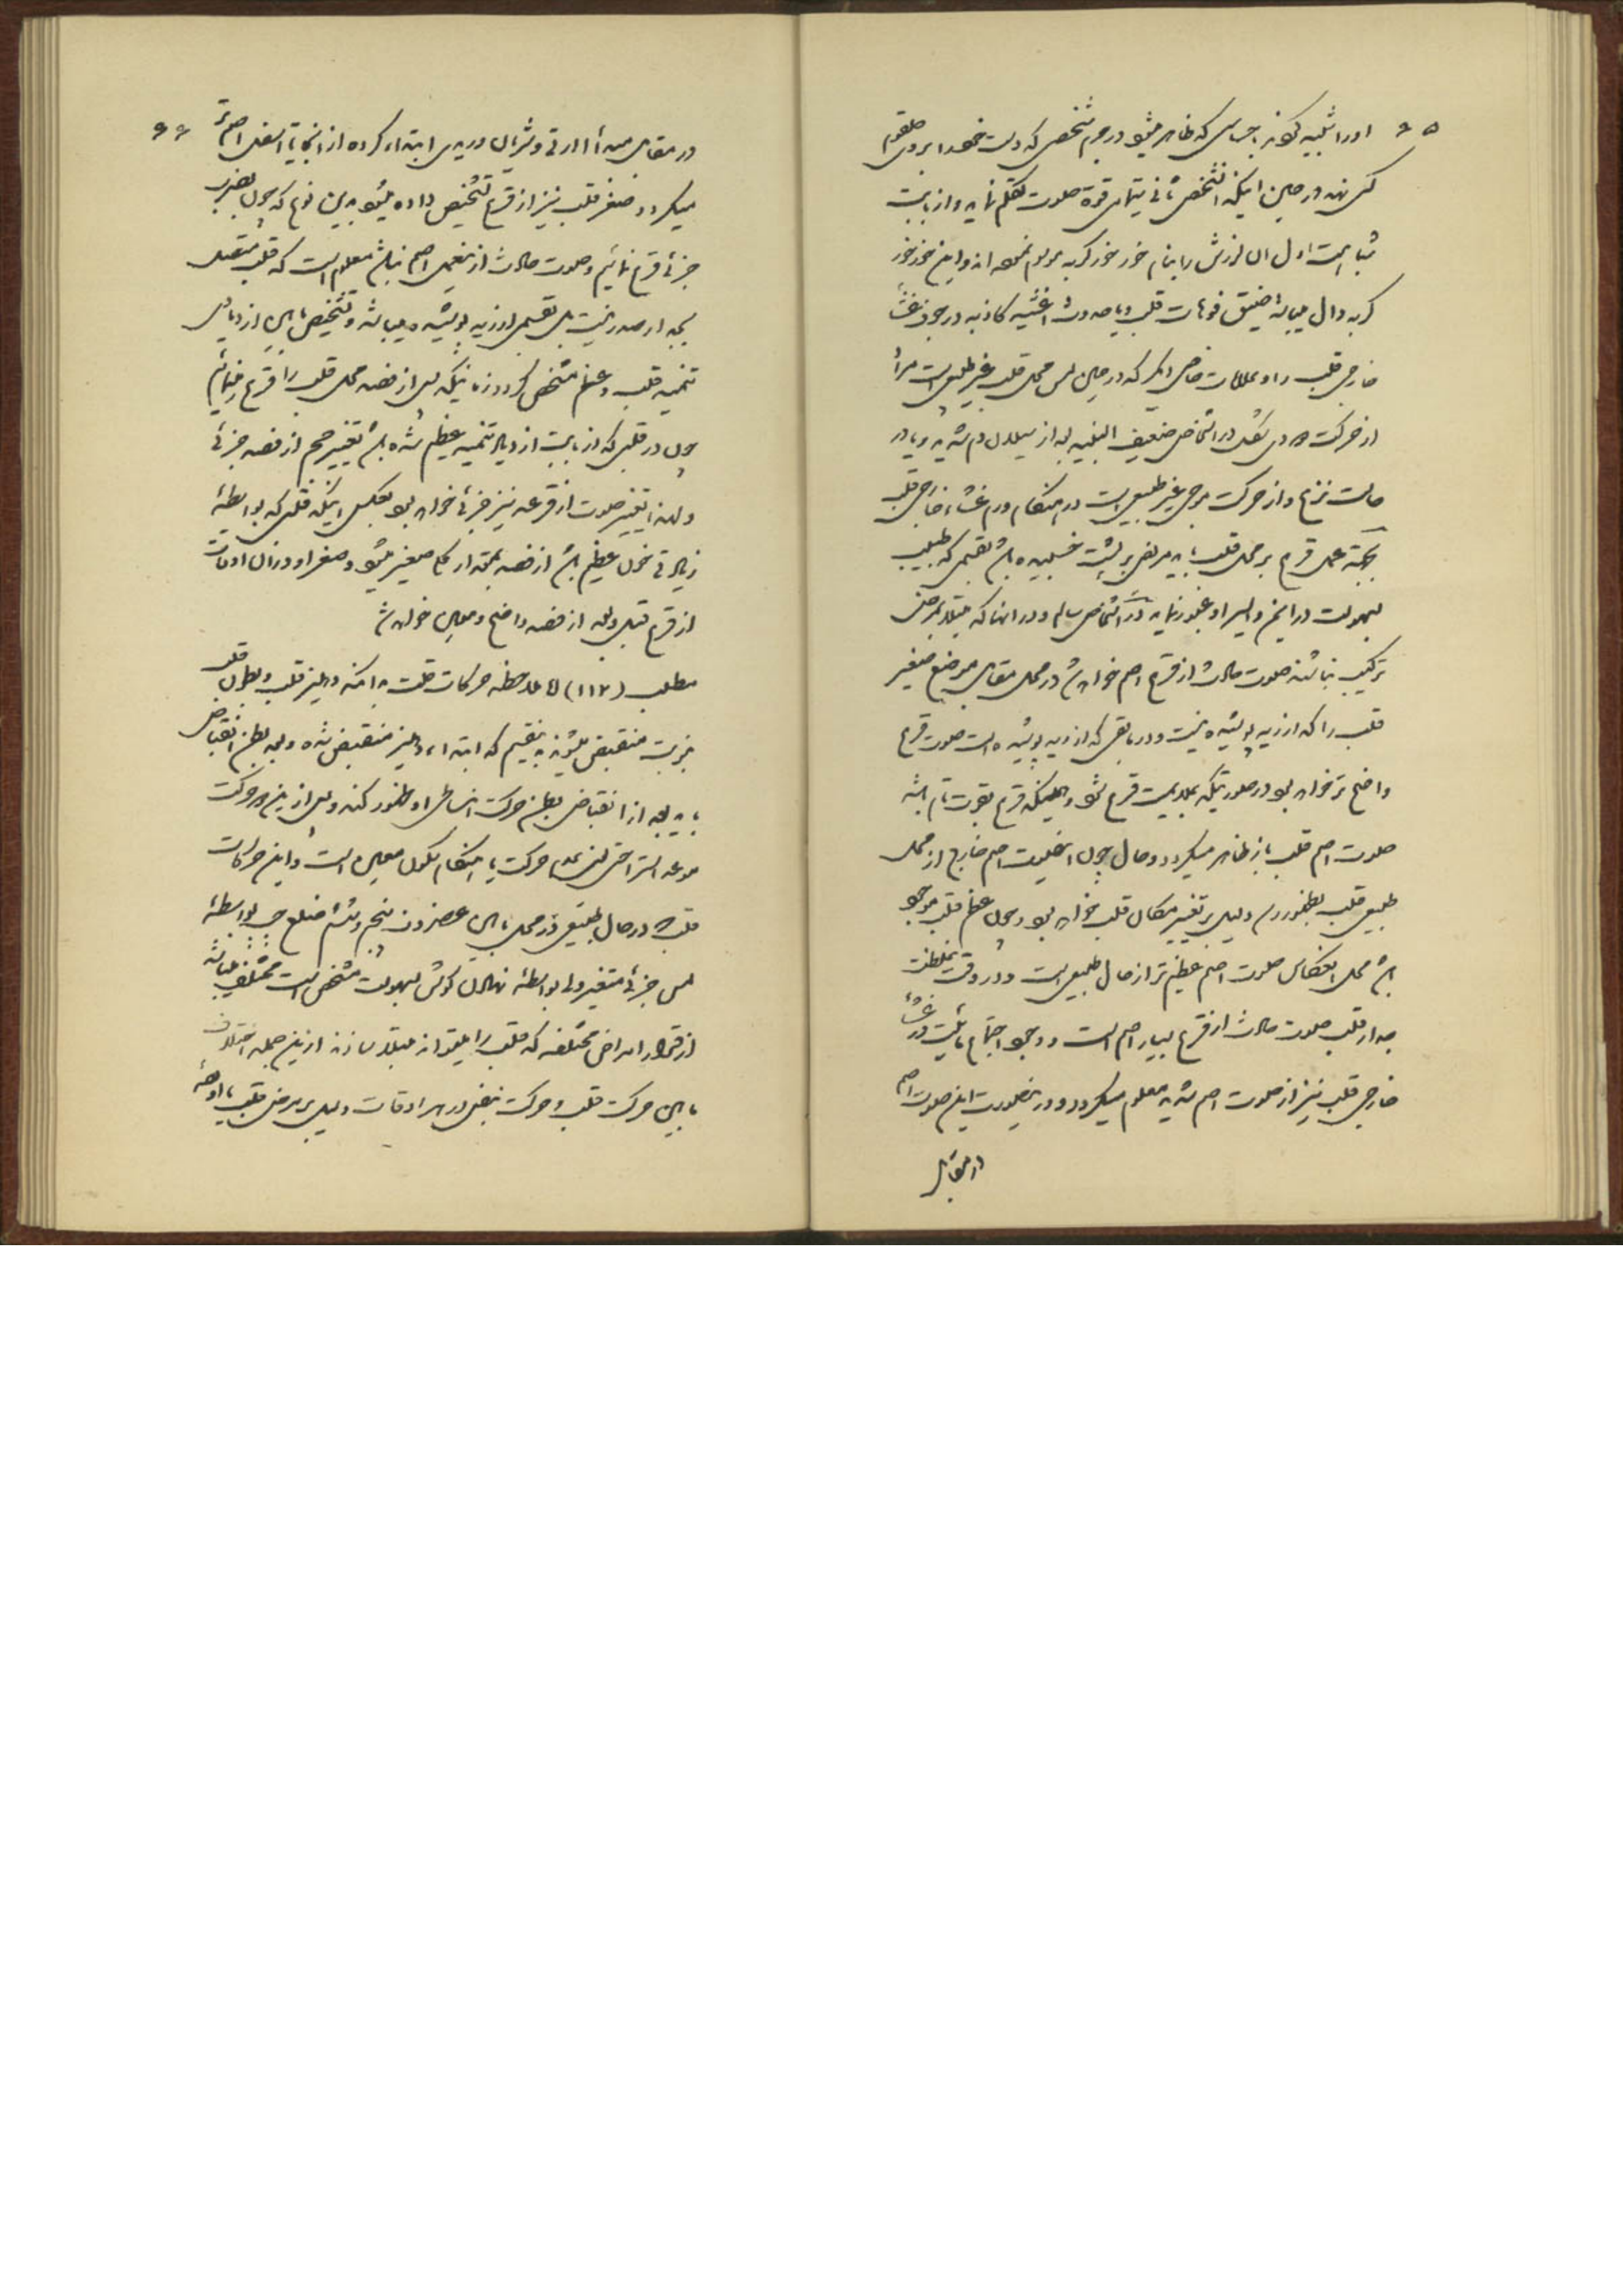 ۶۵
او را تشبیه کنند باحساسی که ظاهر میشود در جرم شخصی که دست خود را بر روی حلقوم
کسی نهد در حین اینکه الشخص ثانی بتمامی قوة صوت تکلم نماید و از بابت
شباهت اول آن لرزش را بنام خور خور گربه موسوم نموده اند و این خور خور
گربه دال میباشد بضیق فوهات قلب و یا حدوث اغشیه کاذبه در جوف غشاء
خارجی قلب و او علامات خاصی دیگر که در حین لمس محل قلب غیر طبیعی است مرا
از حرکت در اشخاص ضعیف البنیه بعد از سیلان دم شدید و یا در
حالت نزع و از حرکت موجی غیر طبیعی است در هنگام ورم غشاء خارجی قلب
بجهة عمل قرع بر محل قلب باید مریض بر پشت خسبیده باشد بقسمی که طبیب
بسهولت در ایمن و ایسر او عبور نماید در اشخاص سالم و در آنها که مبتلا بمرض
ترکیب نباشند صوت حادث از قرع اصم خواهد شد در محل مقابل موضع صغیر
قلب را که از ریه پوشیده نیست و در مابقی که از ریه پوشیده است صوت قرع
واضح تر خواهد بود در صورتیکه بملایمت قرع شود و هنگامیکه قرع بقوت تمام باشد
صوت اصم قلب باز ظاهر میگردد و حال چون این صوت اصم خارج از محل
طبیعی قلب بظهور رسد دلیل بر تغییر مکان قلب خواهد بود و چون عظم قلب موجود
باشد محل انعکاس صوت اصم عظیم تر از حال طبیعی است و در وقت غلظت
جدار قلب صوت حادث از قرع بسیار اصم است و وجود اجتماع مائیت در غشاء
خارجی قلب نیز از صوت اصم شدید معلوم میگردد و در اینصورت این صوت اصم
در مقابل
۶۶
در مقابل مبدأ اورتی و شریان وریدی ابتداء کرده از آنجا تا اسفل اصم
میگردد و صغر قلب نیز از قرع تشخیص داده میشود بدین نوع که چون بضرب
جزئی قرع نمائیم و صوت حادث از بعضی اصم نباشد معلوم است که قلب متصل
بجدار صدر نیست بل بقسمی از ریه پوشیده میباشد و تشخیص مابین ازدیاد
تنمیه قلب و عظم مشخص گردد زمانیکه پس از فصد محل قلب را قرع نمائیم
چون در قلبی که از بابت ازدیاد تنمیه عظیم شده باشد تغییر حجم از فصد جزئی
و لهذا تغییر صوت از قرعه نیز جزئی خواهد بود بعکس اینکه قلبی که بواسطه
زیادتی خون عظیم باشد از فصد بمقدار کلی صغیر میشود و صغر او در آن اوقات
از قرع قبل و بعد از فصد واضح و معین خواهد شد
مطلب (۱۱۲) ملاحظه حرکات قلب بدانکه دهلیز قلب و بطون قلب
بنوبت منقبض میشوند بقسمی که ابتداء دهلیز منقبض شده و بعد بطن انقباض
یابد بعد از انقباض بطن حرکت انبساطی او ظهور کند و پس از این دو حرکت
موعد استراحتی یعنی عدم حرکت یا هنگام سکون معین است و این حرکات
قلب در حال طبیعی در محل مابین غضروف پنجم و ششم ضلع چپ بواسطه
لمس جزئی متغیر ولی بواسطه نهادن گوش بسهولت مشخص است مختلف میباشد
از قرار امراض مختلفه که قلب را میتوانند مبتلا سازند از این جمله اختلاف
مابین حرکت قلب و حرکت نبض در هر اوقات دلیل بر مرض قلب یا اوعیه